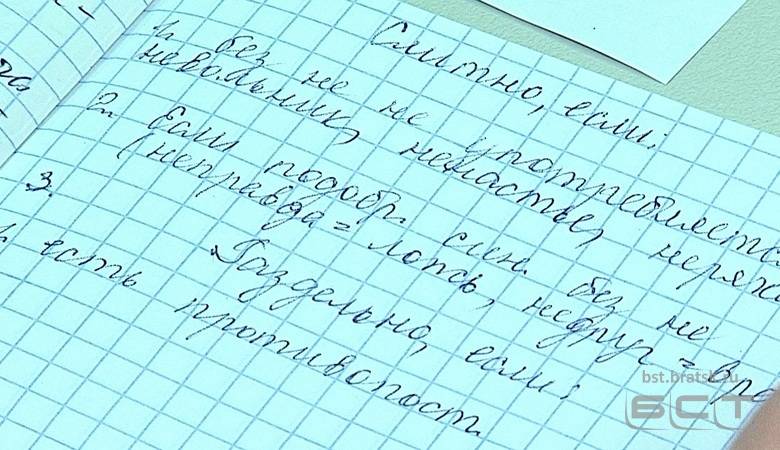 Слитно, если:
1. без не не употребляется
невольник, ненастье, неряха
2. Если подобр. син. без не
(неправда = ложь, недруг = вра
3.
Раздельно, если:
есть противопост.
bst.bratsk.ru
БСТ